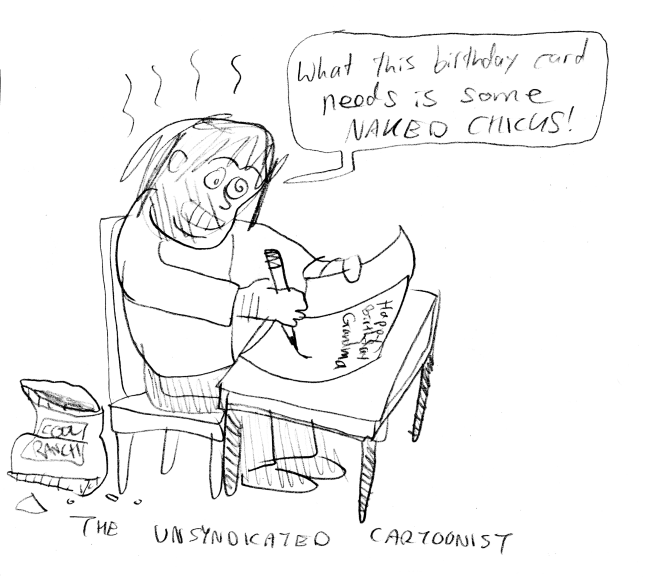 What this birthday card
needs is some
NAKED CHICKS!
Happy
Birthday
Grandma
COOL
RANCH
THE UNSYNDICATED CARTOONIST